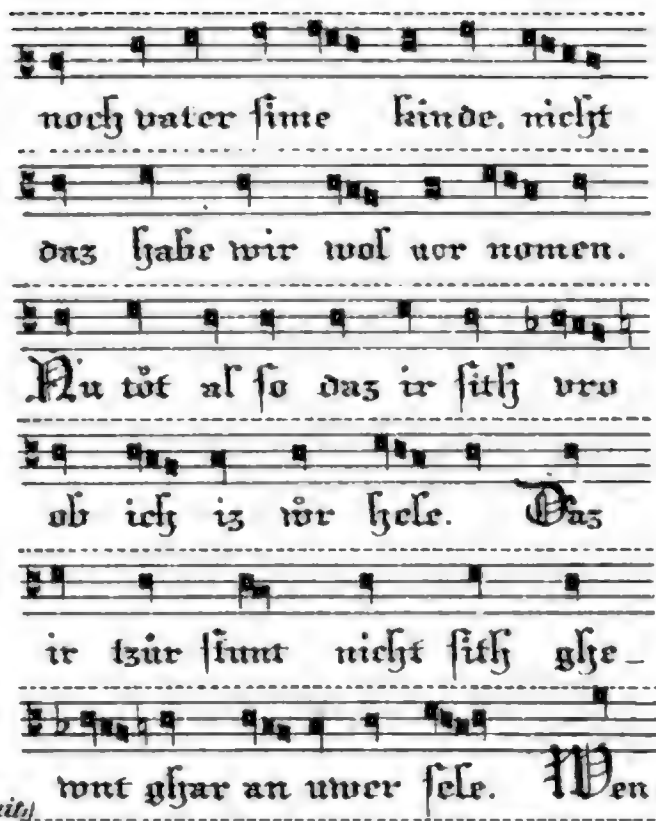 noch vater sime kinde. nicht
daz habe wir wol uor nomen.
Nu tůt al so daz ir sith vro
ob ich iz ůr hele. Daz
ir tzůr stunt nicht sith ghe-
wnt ghar an uwer sele. Wen